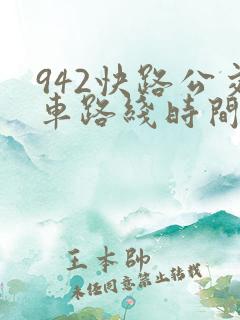 942快路公交
車路綫時間
王本帥
未经同意禁止转载